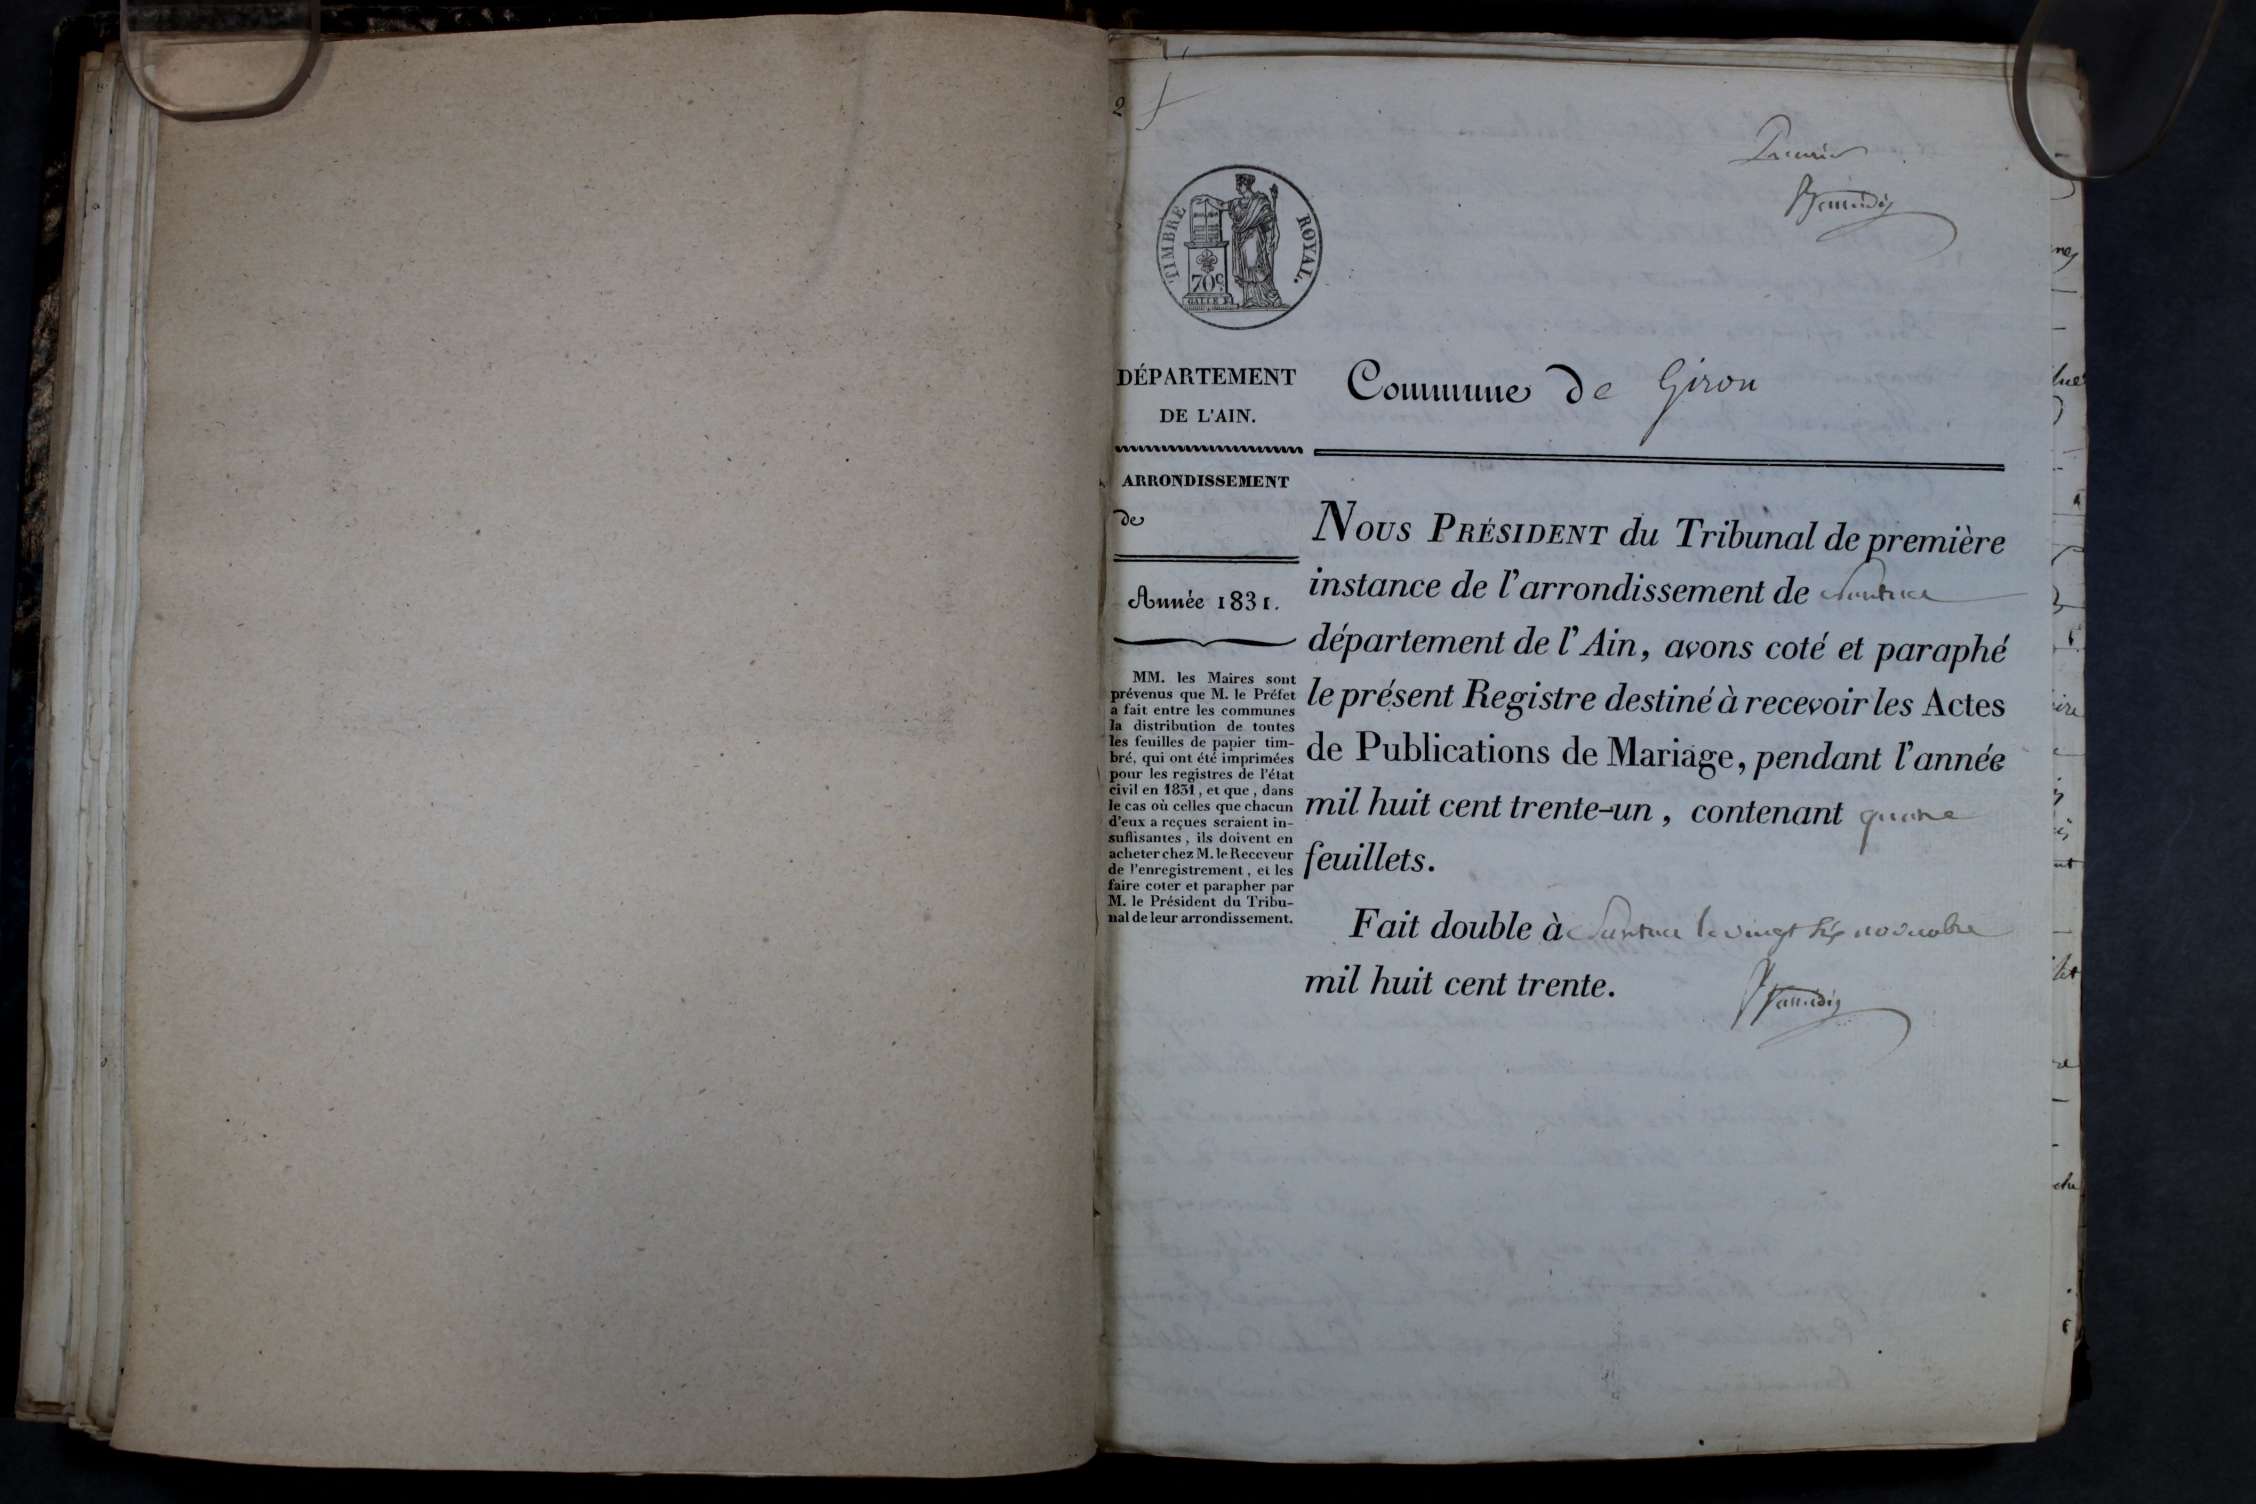 2
Premier
TIMBRE ROYAL.
70c.
GALLE F.
DÉPARTEMENT
DE L'AIN.
Commune de Giron
ARRONDISSEMENT
de
Année 1831.
MM. les Maires sont
prévenus que M. le Préfet
a fait entre les communes
la distribution de toutes
les feuilles de papier tim-
bré, qui ont été imprimées
pour les registres de l'état
civil en 1831, et que, dans
le cas où celles que chacun
d'eux a reçues seraient in-
suffisantes, ils doivent en
acheter chez M. le Receveur
de l'enregistrement, et les
faire coter et parapher par
M. le Président du Tribu-
nal de leur arrondissement.
NOUS PRÉSIDENT du Tribunal de première
instance de l'arrondissement de Nantua
département de l'Ain, avons coté et paraphé
le présent Registre destiné à recevoir les Actes
de Publications de Mariage, pendant l'année
mil huit cent trente-un, contenant quatre
feuillets.
Fait double à Nantua le vingt six novembre
mil huit cent trente.